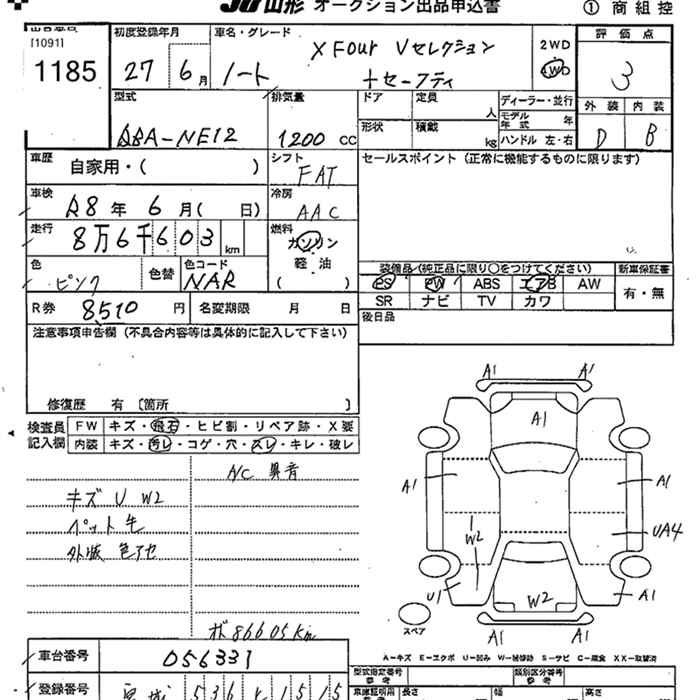 JU山形 オークション出品申込書
① 商組控
[1091]
1185
初度登録年月
27 6月
車名・グレード
ノート
X Four Vセレクション
+セーフティ
2WD
4WD
評価点
3
外装 内装
D B
型式
DBA-NE12
排気量
1200 CC
ドア 定員 人
形状 積載 kg
ディーラー・並行
モデル年式 年
ハンドル 左・右
車歴
自家用・( )
シフト
FAT
セールスポイント (正常に機能するものに限ります)
車検
28年 6月( 日)
冷房
AAC
走行
8万6千603 km
燃料
ガソリン
軽油
( )
色
ピンク
色替
色コード
NAR
装備品 (純正品に限り○をつけてください)
新車保証書
PS PW ABS エアB AW
SR ナビ TV カワ
有・無
R券 8510 円
名変期限 月 日
後日品
注意事項申告欄 (不具合内容等は具体的に記入して下さい)
修復歴 有 [箇所 ]
検査員記入欄
FW キズ・飛石・ヒビ割・リペア跡・X要
内装 キズ・汚レ・コゲ・穴・スレ・キレ・破レ
N/C 異音
キズ U W2
ペット毛
外版 色アセ
メーター 86605km
A1 A1
A1
A1 A1
W2
UA4
U1
W2
A1
A1 A1
スペア
A-キズ E-エクボ U-凹み W-補修跡 S-サビ C-腐食 XX-取替済
車台番号
056331
登録番号
宮城 536 15 15
型式指定番号
参考
類別区分番号
参考
長さ 幅 高さ